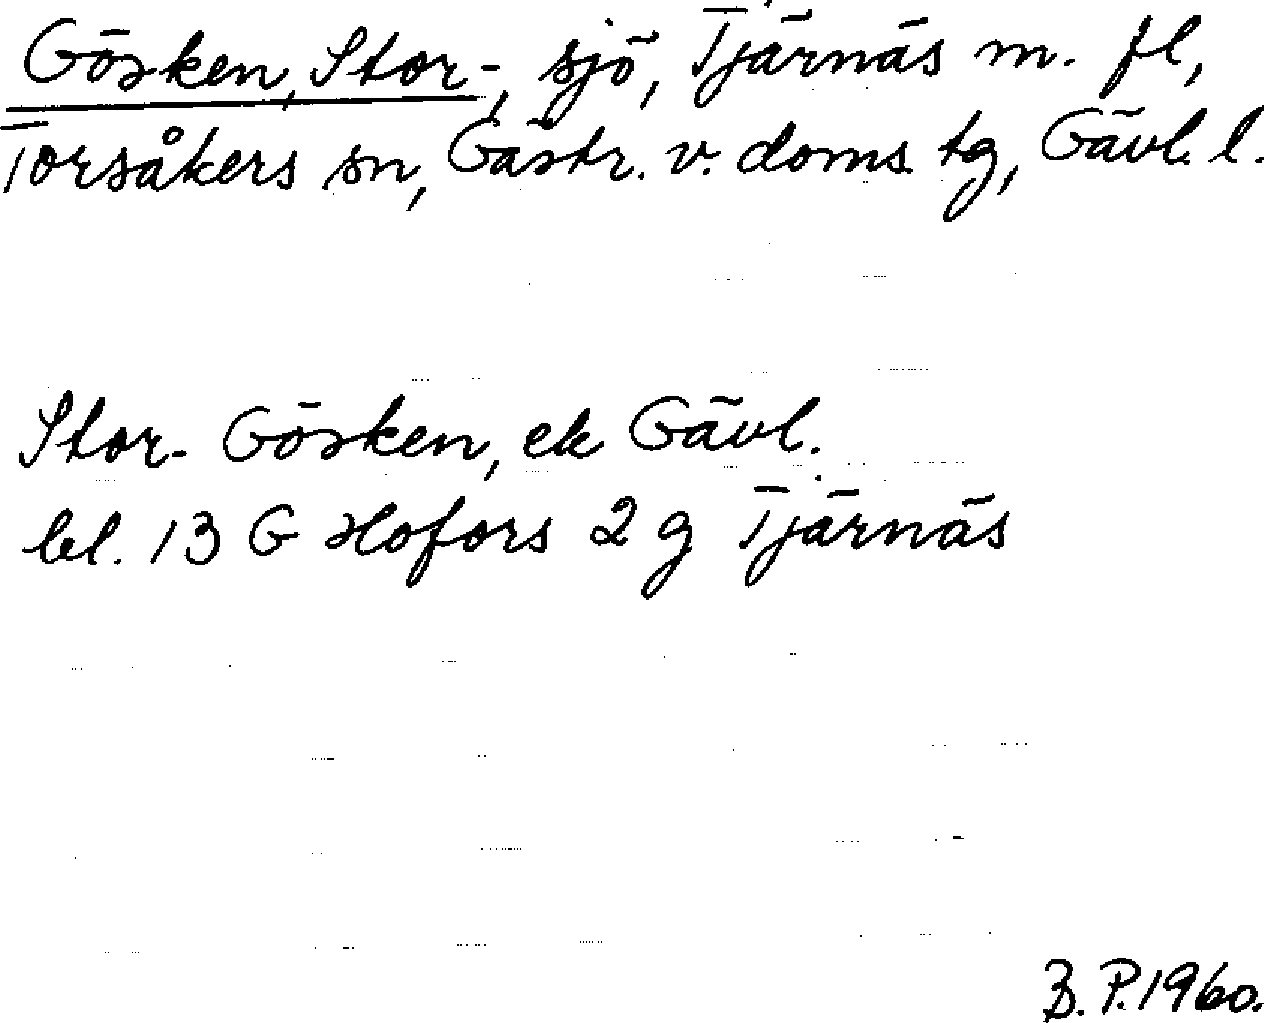 Gösken, Stor-, sjö, Tjärnäs m. fl,
Torsåkers sn, Gästr. v. doms. tg, Gävl. l.
Stor-Gösken, ek Gävl.
bl. 13 G Hofors 2 g Tjärnäs
B. P. 1960.